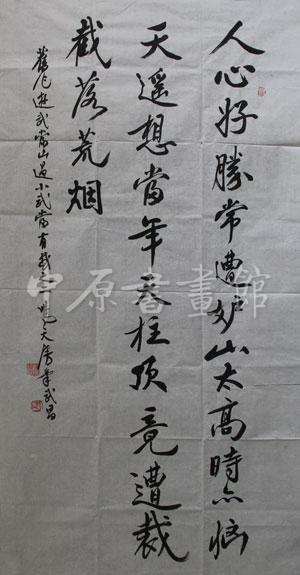 人心好勝常遭妒山太高時亦惱
天遥想當年天柱頂竟遭裁
截落荒烟
舊作遊武當山過小武當有感 天 筆武昌
中原書畫館